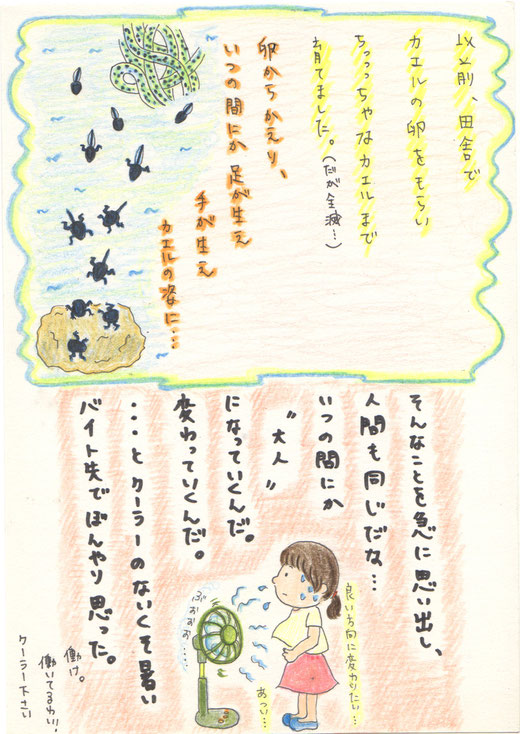 以前、田舎で
カエルの卵をもらい
ちっっっちゃなカエルまで
育てました。(だが全滅…)
卵からかえり、
いつの間にか足が生え
手が生え
カエルの姿に…
そんなことを急に思い出し、
人間も同じだな…
いつの間にか
〝大人〟
になっていくんだ。
変わっていくんだ。
・・・とクーラーのないくそ暑い
バイト先でぼんやり思った。
良い方向に変わりたい…
あつい…
ぶぉぉぉぉ…
働け。
働いてるわい!
クーラー下さい